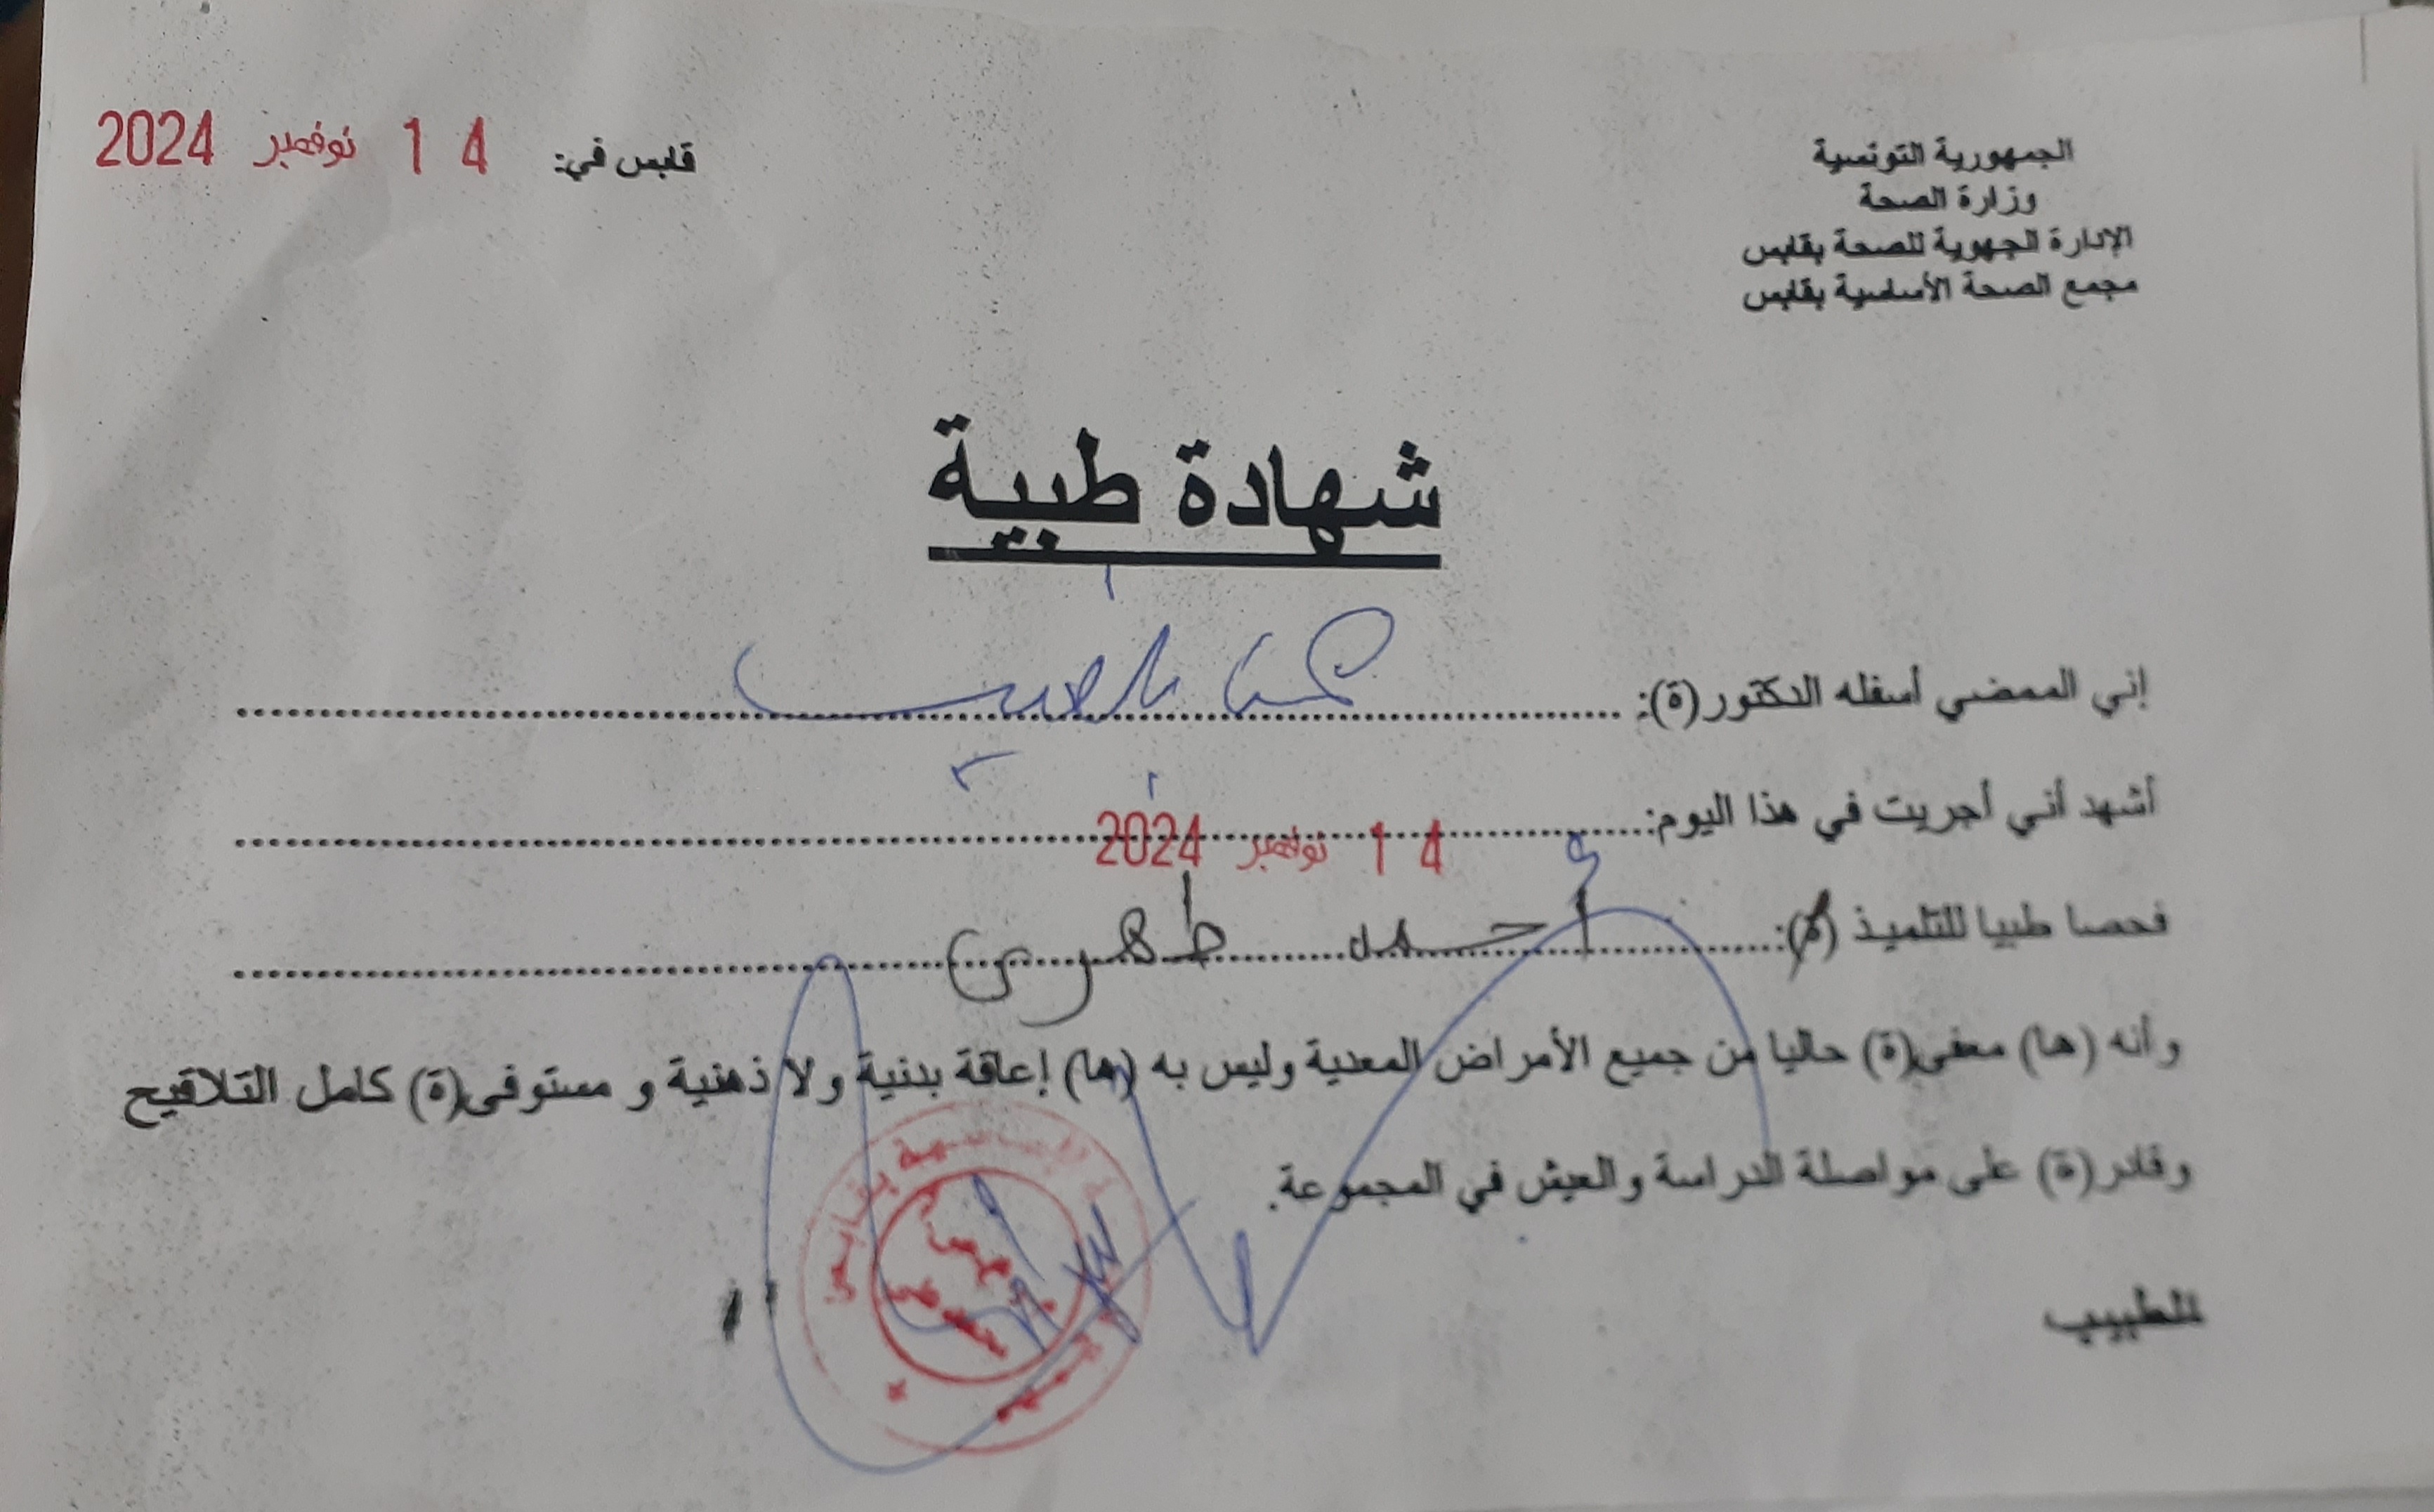 الجمهورية التونسية
وزارة الصحة
الإدارة الجهوية للصحة بقابس
مجمع الصحة الأساسية بقابس
قابس في: 14 نوفمبر 2024
شهادة طبية
إني الممضي أسفله الدكتور(ة):
أشهد أني أجريت في هذا اليوم: 14 نوفمبر 2024
فحصا طبيا للتلميذ (ة): أحمد طهري
وأنه (ها) معفى(ة) حاليا من جميع الأمراض المعدية وليس به (ها) إعاقة بدنية ولا ذهنية و مستوفى(ة) كامل التلاقيح
وقادر(ة) على مواصلة الدراسة والعيش في المجموعة.
الطبيب